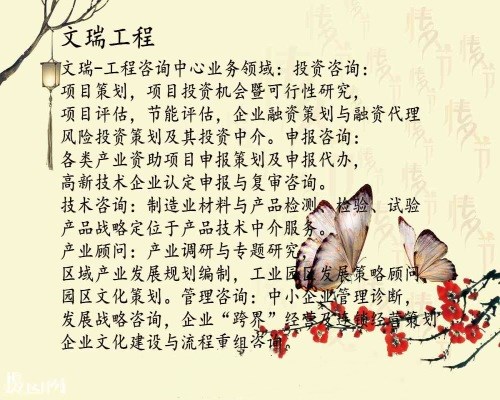 文瑞工程
文瑞-工程咨询中心业务领域：投资咨询：
项目策划，项目投资机会暨可行性研究，
项目评估，节能评估，企业融资策划与融资代理
风险投资策划及其投资中介。申报咨询：
各类产业资助项目申报策划及申报代办，
高新技术企业认定申报与复审咨询。
技术咨询：制造业材料与产品检测、检验、试验
产品战略定位于产品技术中介服务。
产业顾问：产业调研与专题研究，
区域产业发展规划编制，工业园区发展策略顾问，
园区文化策划。管理咨询：中小企业管理诊断，
发展战略咨询，企业“跨界”经营及连锁经营策划
企业文化建设与流程重组咨询。